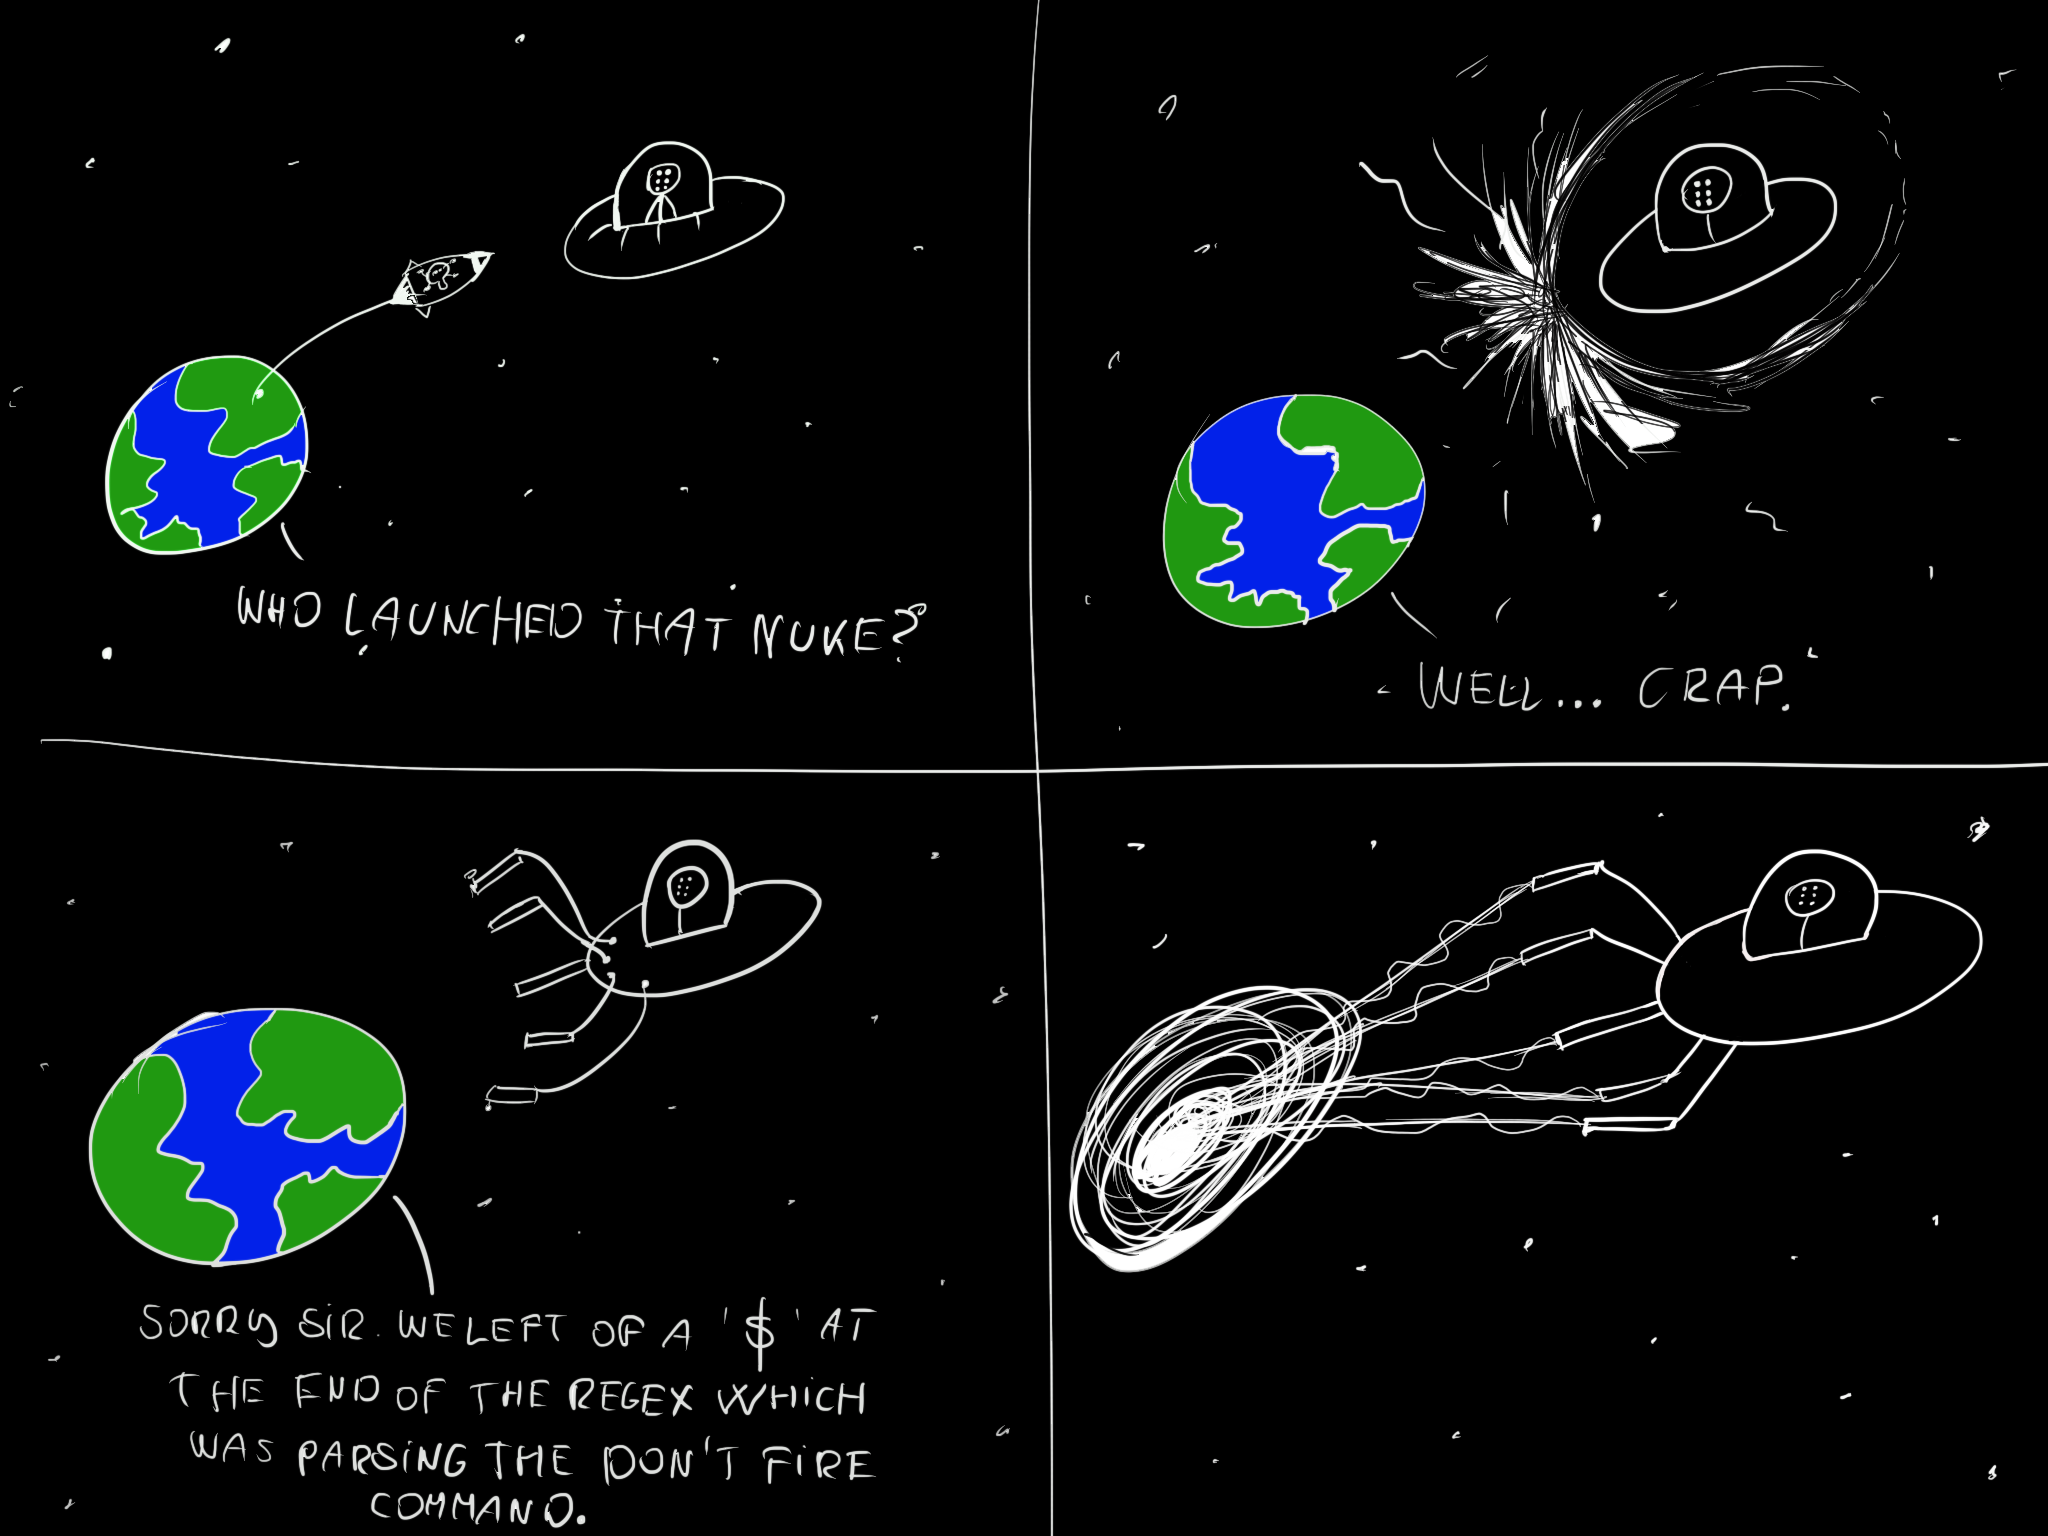 WHO LAUNCHED THAT NUKE?
WELL... CRAP.
SORRY SIR. WE LEFT OF A '$' AT
THE END OF THE REGEX WHICH
WAS PARSING THE DON'T FIRE
COMMAND.